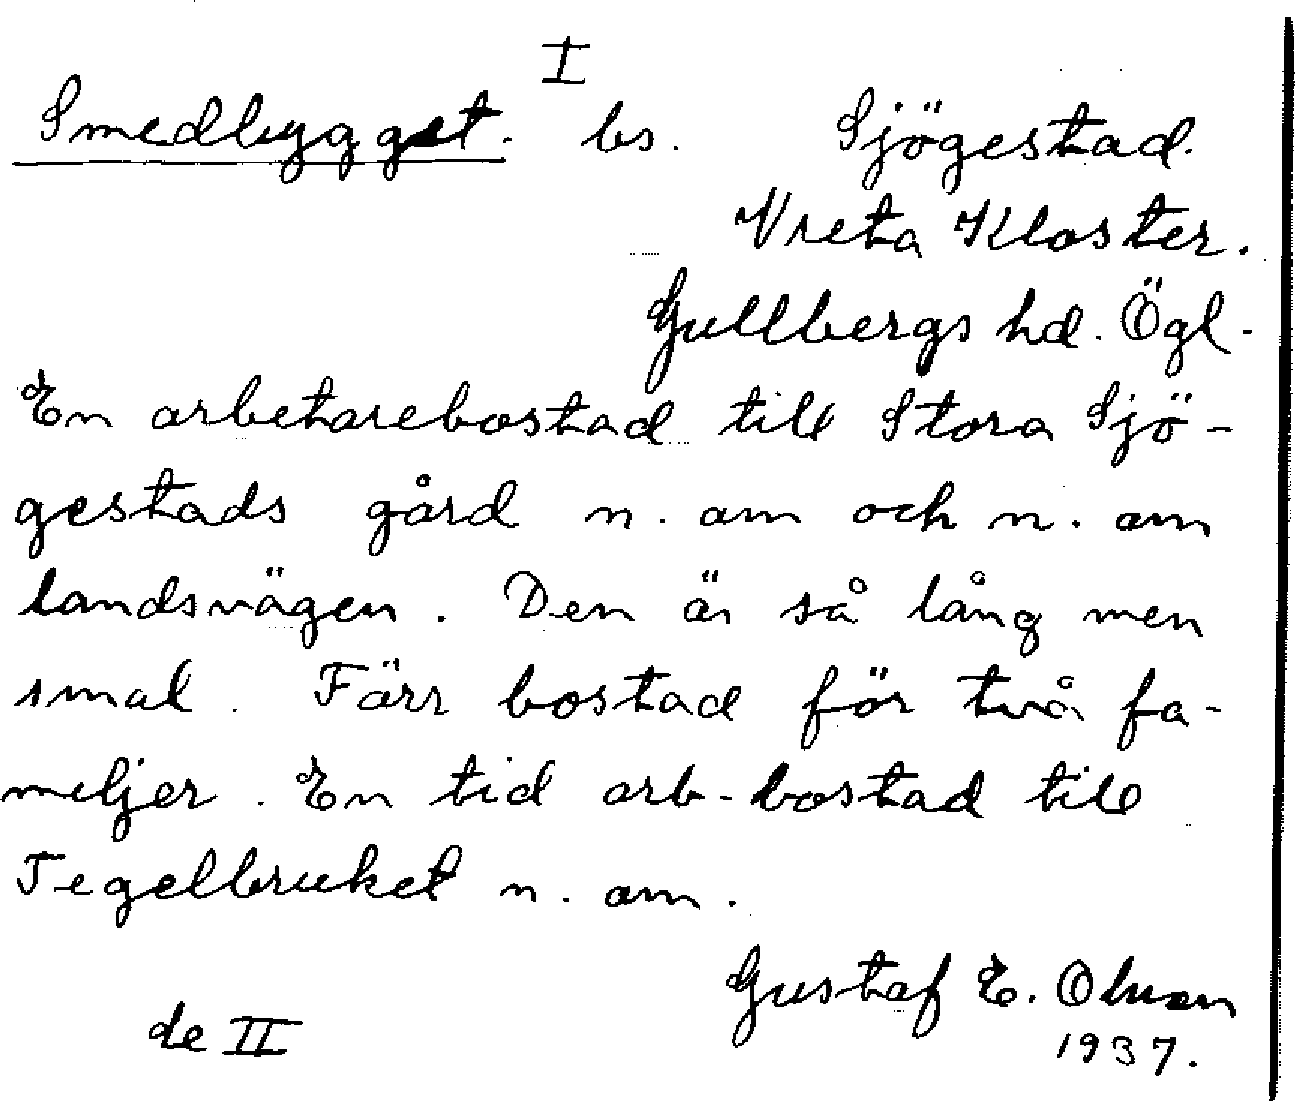 I
Smedbygget. bs. Sjögestad.
Vreta Kloster.
Gullbergs hd. Ögl.
En arbetarebostad till Stora Sjö-
gestads gård n. om och n. om
landsvägen. Den är så lång men
smal. Färr bostad för två fa-
miljer. En tid arb-bostad till
Tegelbruket n. om.
Gustaf E. Olsson
de II 1937.